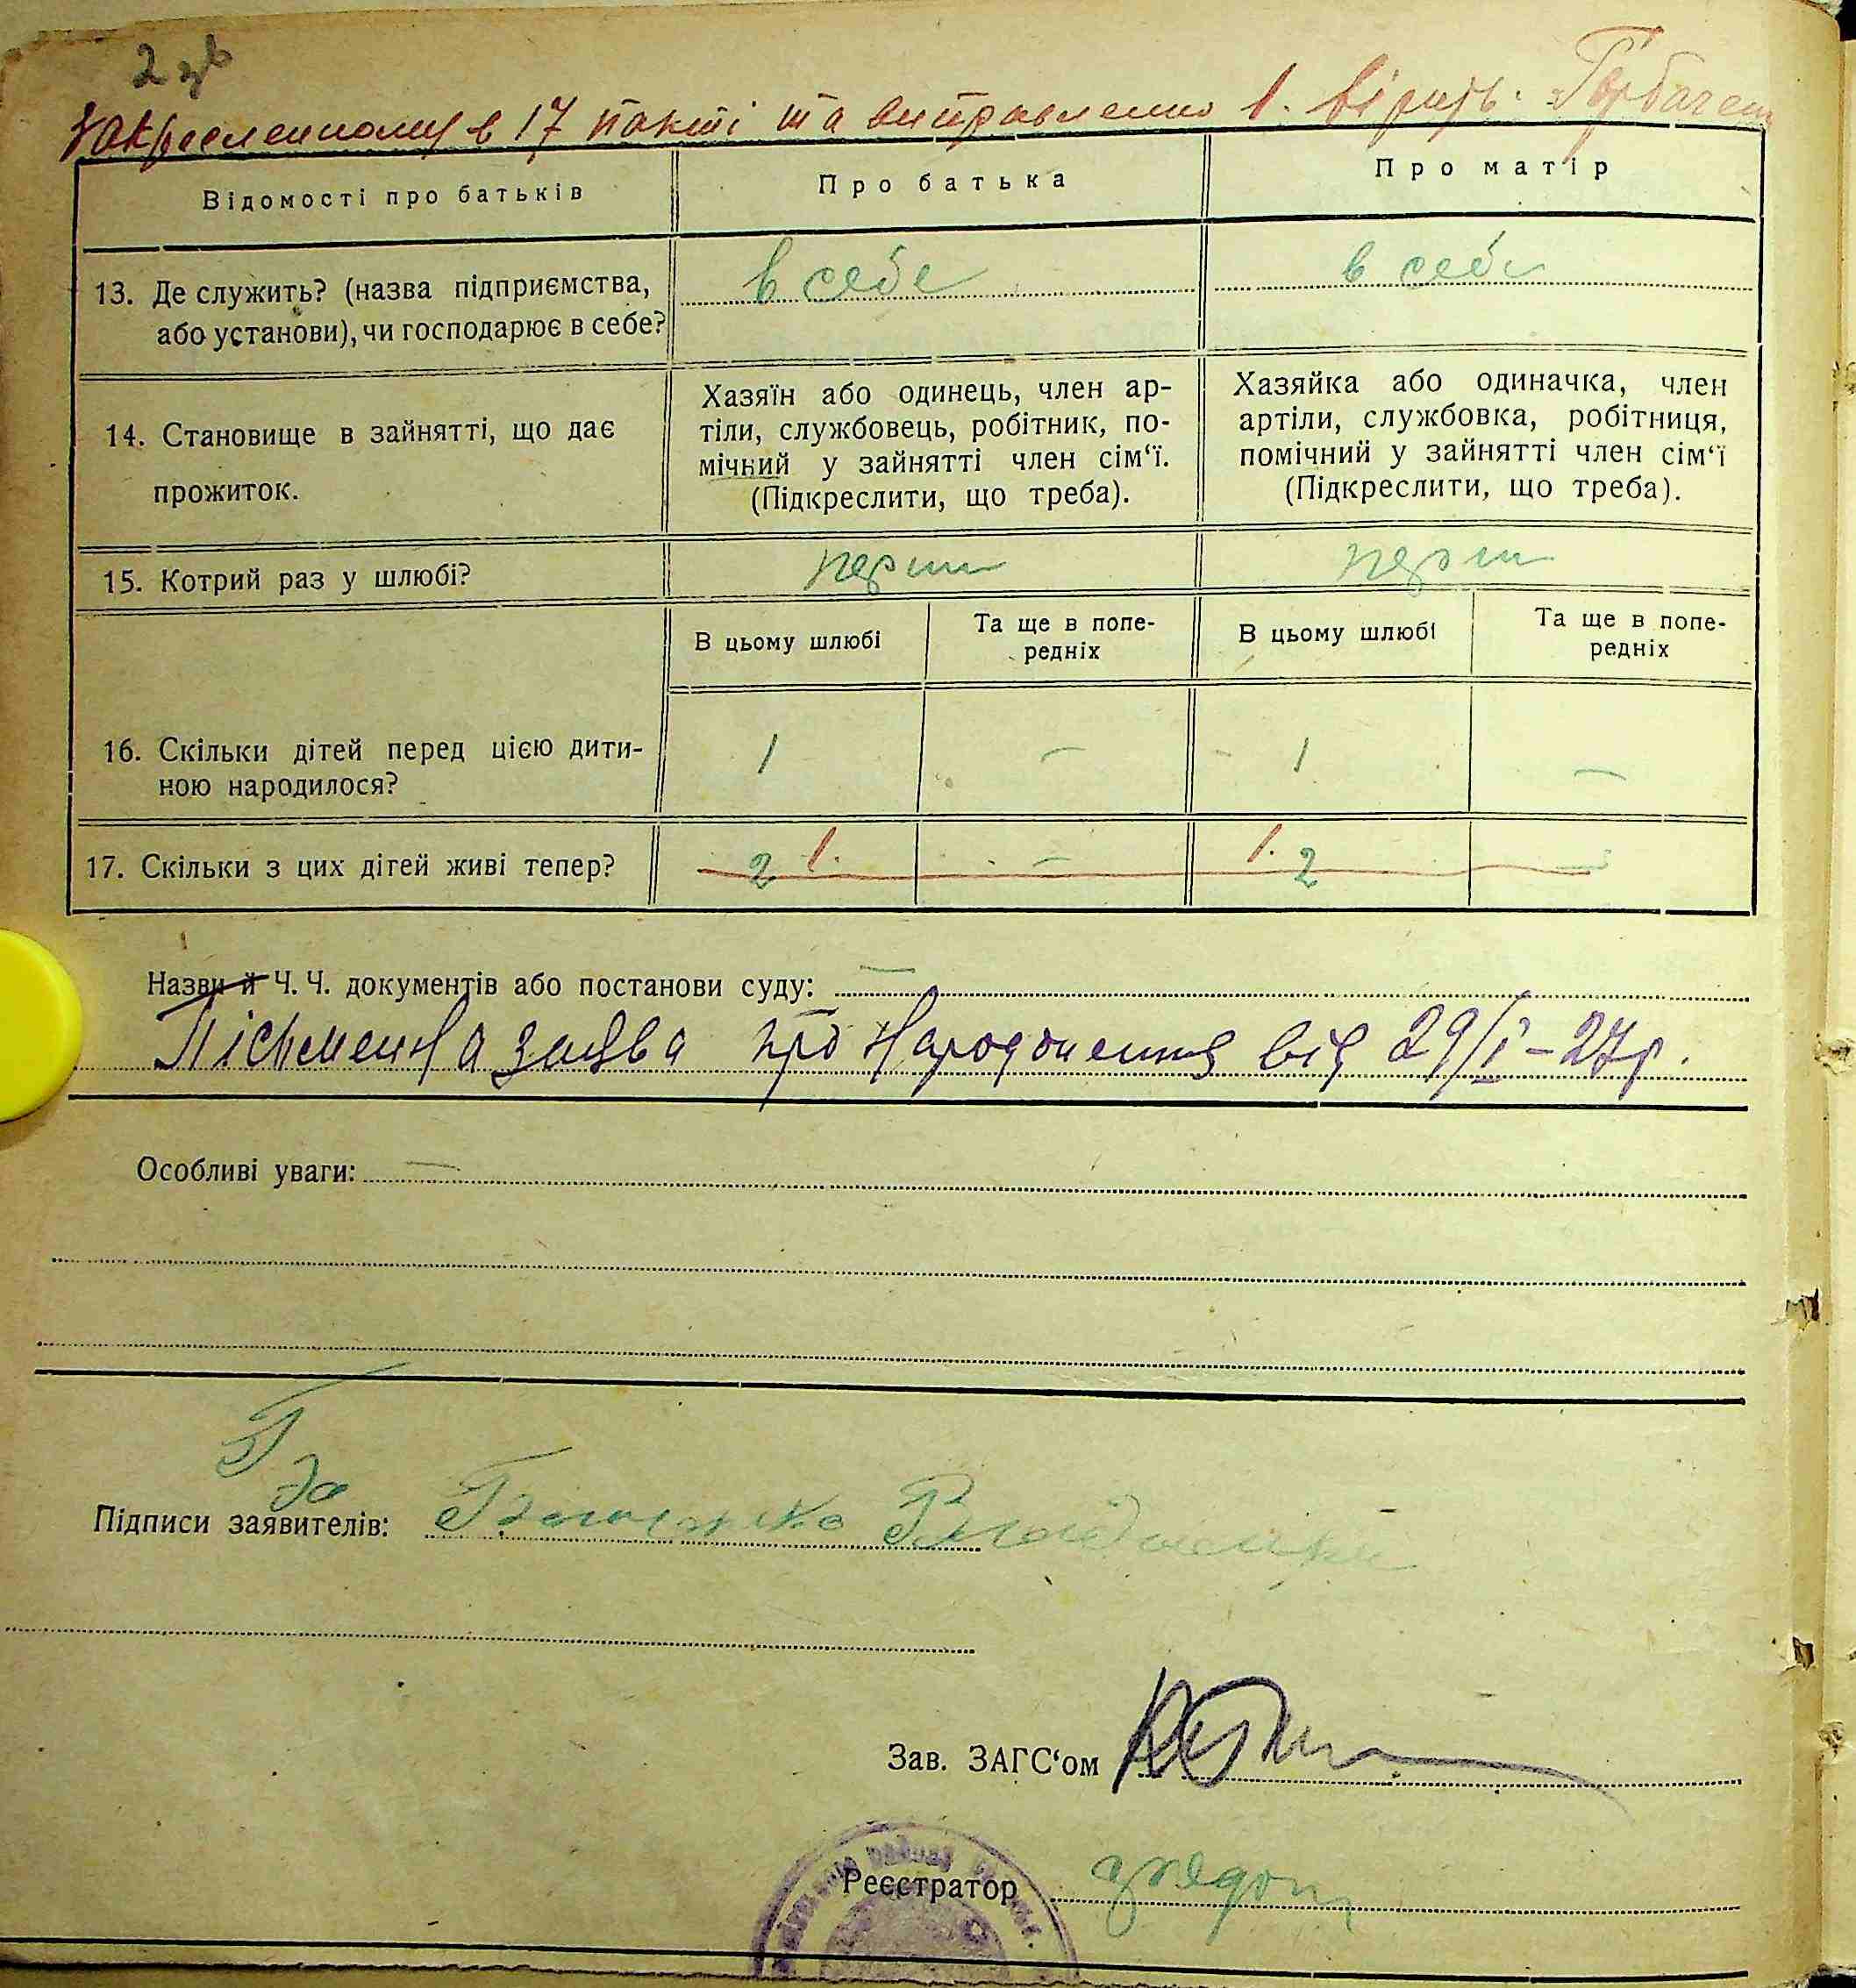 2 зв
Закресленному в 17 пакті та виправленно 1. вірить. Горбачен
Відомості про батьків
Про батька
Про матір
13. Де служить? (назва підприємства,
або установи), чи господарює в себе?
в себе
в себе
14. Становище в зайнятті, що дає
прожиток.
Хазяїн або одинець, член ар-
тіли, службовець, робітник, по-
мічний у зайнятті член сім‘ї.
(Підкреслити, що треба).
Хазяйка або одиначка, член
артіли, службовка, робітниця,
помічний у зайнятті член сім‘ї
(Підкреслити, що треба).
15. Котрий раз у шлюбі?
перши
перши
В цьому шлюбі
Та ще в попе-
редніх
В цьому шлюбі
Та ще в попе-
редніх
16. Скільки дітей перед цією дити-
ною народилося?
1
—
1
—
17. Скільки з цих дітей живі тепер?
2 1.
—
1. 2
—
Назви й Ч. Ч. документів або постанови суду: —
Пісьменна заява про Народження від 29/I-27р.
Особливі уваги: —
Підписи заявителів:
Зав. ЗАГС‘ом
Реєстратор